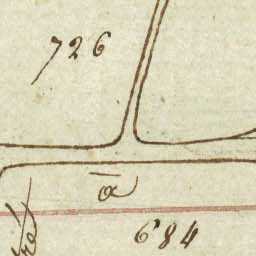 726
a
684